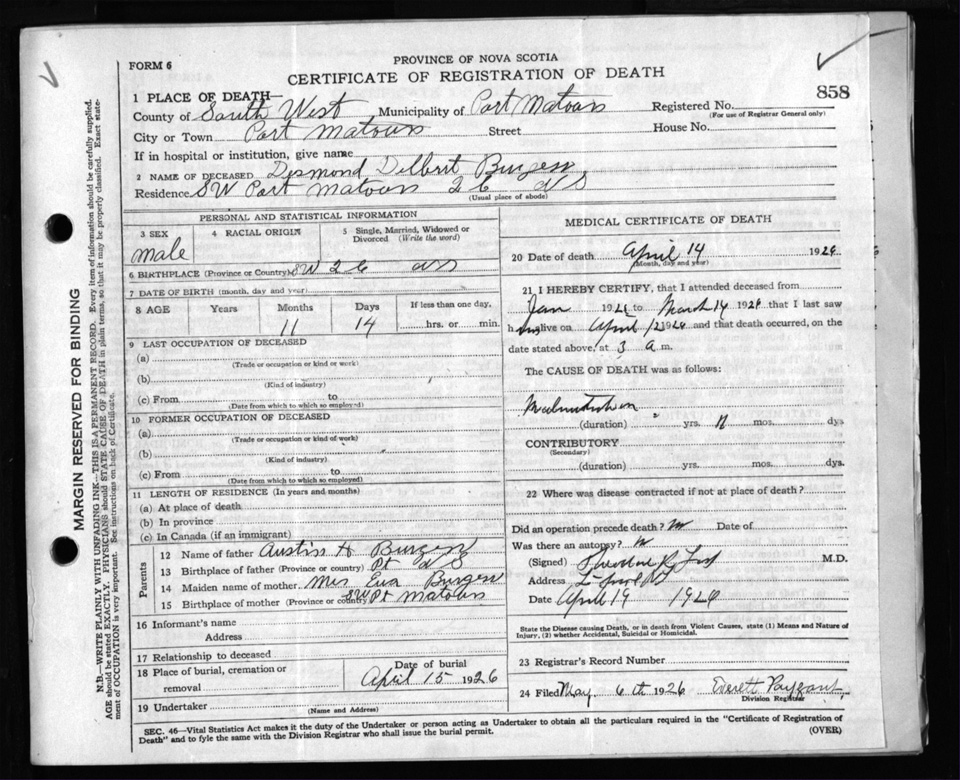 FORM 6
PROVINCE OF NOVA SCOTIA
CERTIFICATE OF REGISTRATION OF DEATH
858
1 PLACE OF DEATH—
County of South West Municipality of Port Matoun Registered No.
(For use of Registrar General only)
City or Town Port Matoun Street House No.
If in hospital or institution, give name
2 NAME OF DECEASED Desmond Delbert Burgess
Residence SW Port Matoun 26 NS
(Usual place of abode)
PERSONAL AND STATISTICAL INFORMATION
3 SEX 4 RACIAL ORIGIN 5 Single, Married, Widowed or Divorced (Write the word)
Male
6 BIRTHPLACE (Province or Country) SW 26 NS
7 DATE OF BIRTH (month, day and year)
8 AGE Years Months Days If less than one day,
11 14 hrs. or min.
9 LAST OCCUPATION OF DECEASED
(a)
(Trade or occupation or kind or work)
(b)
(Kind of industry)
(c) From to
(Date from which to which so employed)
10 FORMER OCCUPATION OF DECEASED
(a)
(Trade or occupation or kind of work)
(b)
(Kind of industry)
(c) From to
(Date from which to which so employed)
11 LENGTH OF RESIDENCE (In years and months)
(a) At place of death
(b) In province
(c) In Canada (if an immigrant)
Parents
12 Name of father Austin H Burgess
13 Birthplace of father (Province or country) Pt NS
14 Maiden name of mother Mrs Eva Burgess
15 Birthplace of mother (Province or country) SW Pt Matoun
16 Informant's name
Address
17 Relationship to deceased
18 Place of burial, cremation or removal Date of burial
April 15 1926
19 Undertaker
(Name and Address)
MEDICAL CERTIFICATE OF DEATH
20 Date of death April 14 1926
(Month, day and year)
21 I HEREBY CERTIFY, that I attended deceased from
Jan 1926 to March 14 1926 that I last saw
h alive on April 1926 and that death occurred, on the
date stated above, at 3 a m.
The CAUSE OF DEATH was as follows:
Malnutrition
(duration) yrs. 11 mos. dys
CONTRIBUTORY
(Secondary)
(duration) yrs. mos. dys.
22 Where was disease contracted if not at place of death?
Did an operation precede death? Date of
Was there an autopsy?
(Signed) M.D.
Address
Date April 19 1926
State the Disease causing Death, or in death from Violent Causes, state (1) Means and Nature of
Injury, (2) whether Accidental, Suicidal or Homicidal.
23 Registrar's Record Number
24 Filed May 6th 1926 Everett Payzant
Division Registrar
SEC. 46—Vital Statistics Act makes it the duty of the Undertaker or person acting as Undertaker to obtain all the particulars required in the "Certificate of Registration of
Death" and to fyle the same with the Division Registrar who shall issue the burial permit.
(OVER)
MARGIN RESERVED FOR BINDING
N.B.—WRITE PLAINLY WITH UNFADING INK—THIS IS A PERMANENT RECORD. Every item of information should be carefully supplied.
AGE should be stated EXACTLY. PHYSICIANS should STATE CAUSE OF DEATH in plain terms, so that it may be properly classified. Exact state-
ment of OCCUPATION is very important. See instructions on back of Certificate.